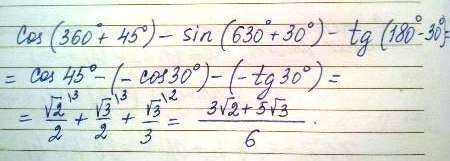 cos (360° + 45°) − sin (630° + 30°) − tg (180° − 30°) =
= cos 45° − (− cos 30°) − (− tg 30°) =
= √2/2 \3 + √3/2 \3 + √3/3 \2 = (3√2 + 5√3)/6.